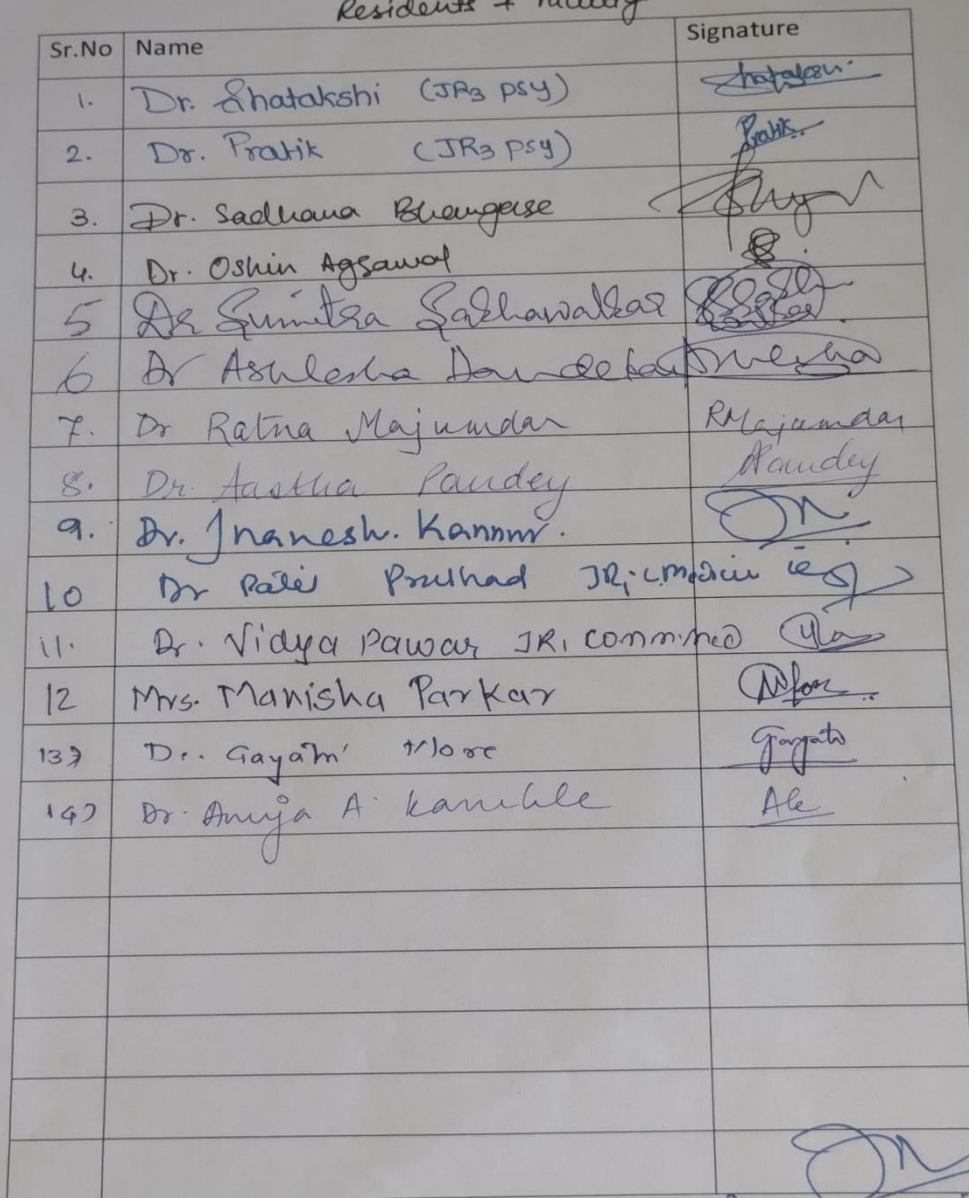 Residents +
Sr.No Name Signature
1. Dr. Shatakshi (JR3 PSY)
2. Dr. Pratik (JR3 PSY) Pratik
3. Dr. Sadhana Bhangase
4. Dr. Oshin Agrawal
5 Dr Sumitra
6 Dr Ashlesha Dandekar
7. Dr Ratna Majumdar RMajumdar
8. Dr. Aastha Pandey APandey
9. Dr. Jnanesh. Kannur.
10 Dr Prashad
11. Dr. Vidya Pawar JR1 comm.med
12 Mrs. Manisha Parkar
13) Dr. Gayatri More
14) Dr. Anuja A. Kamble